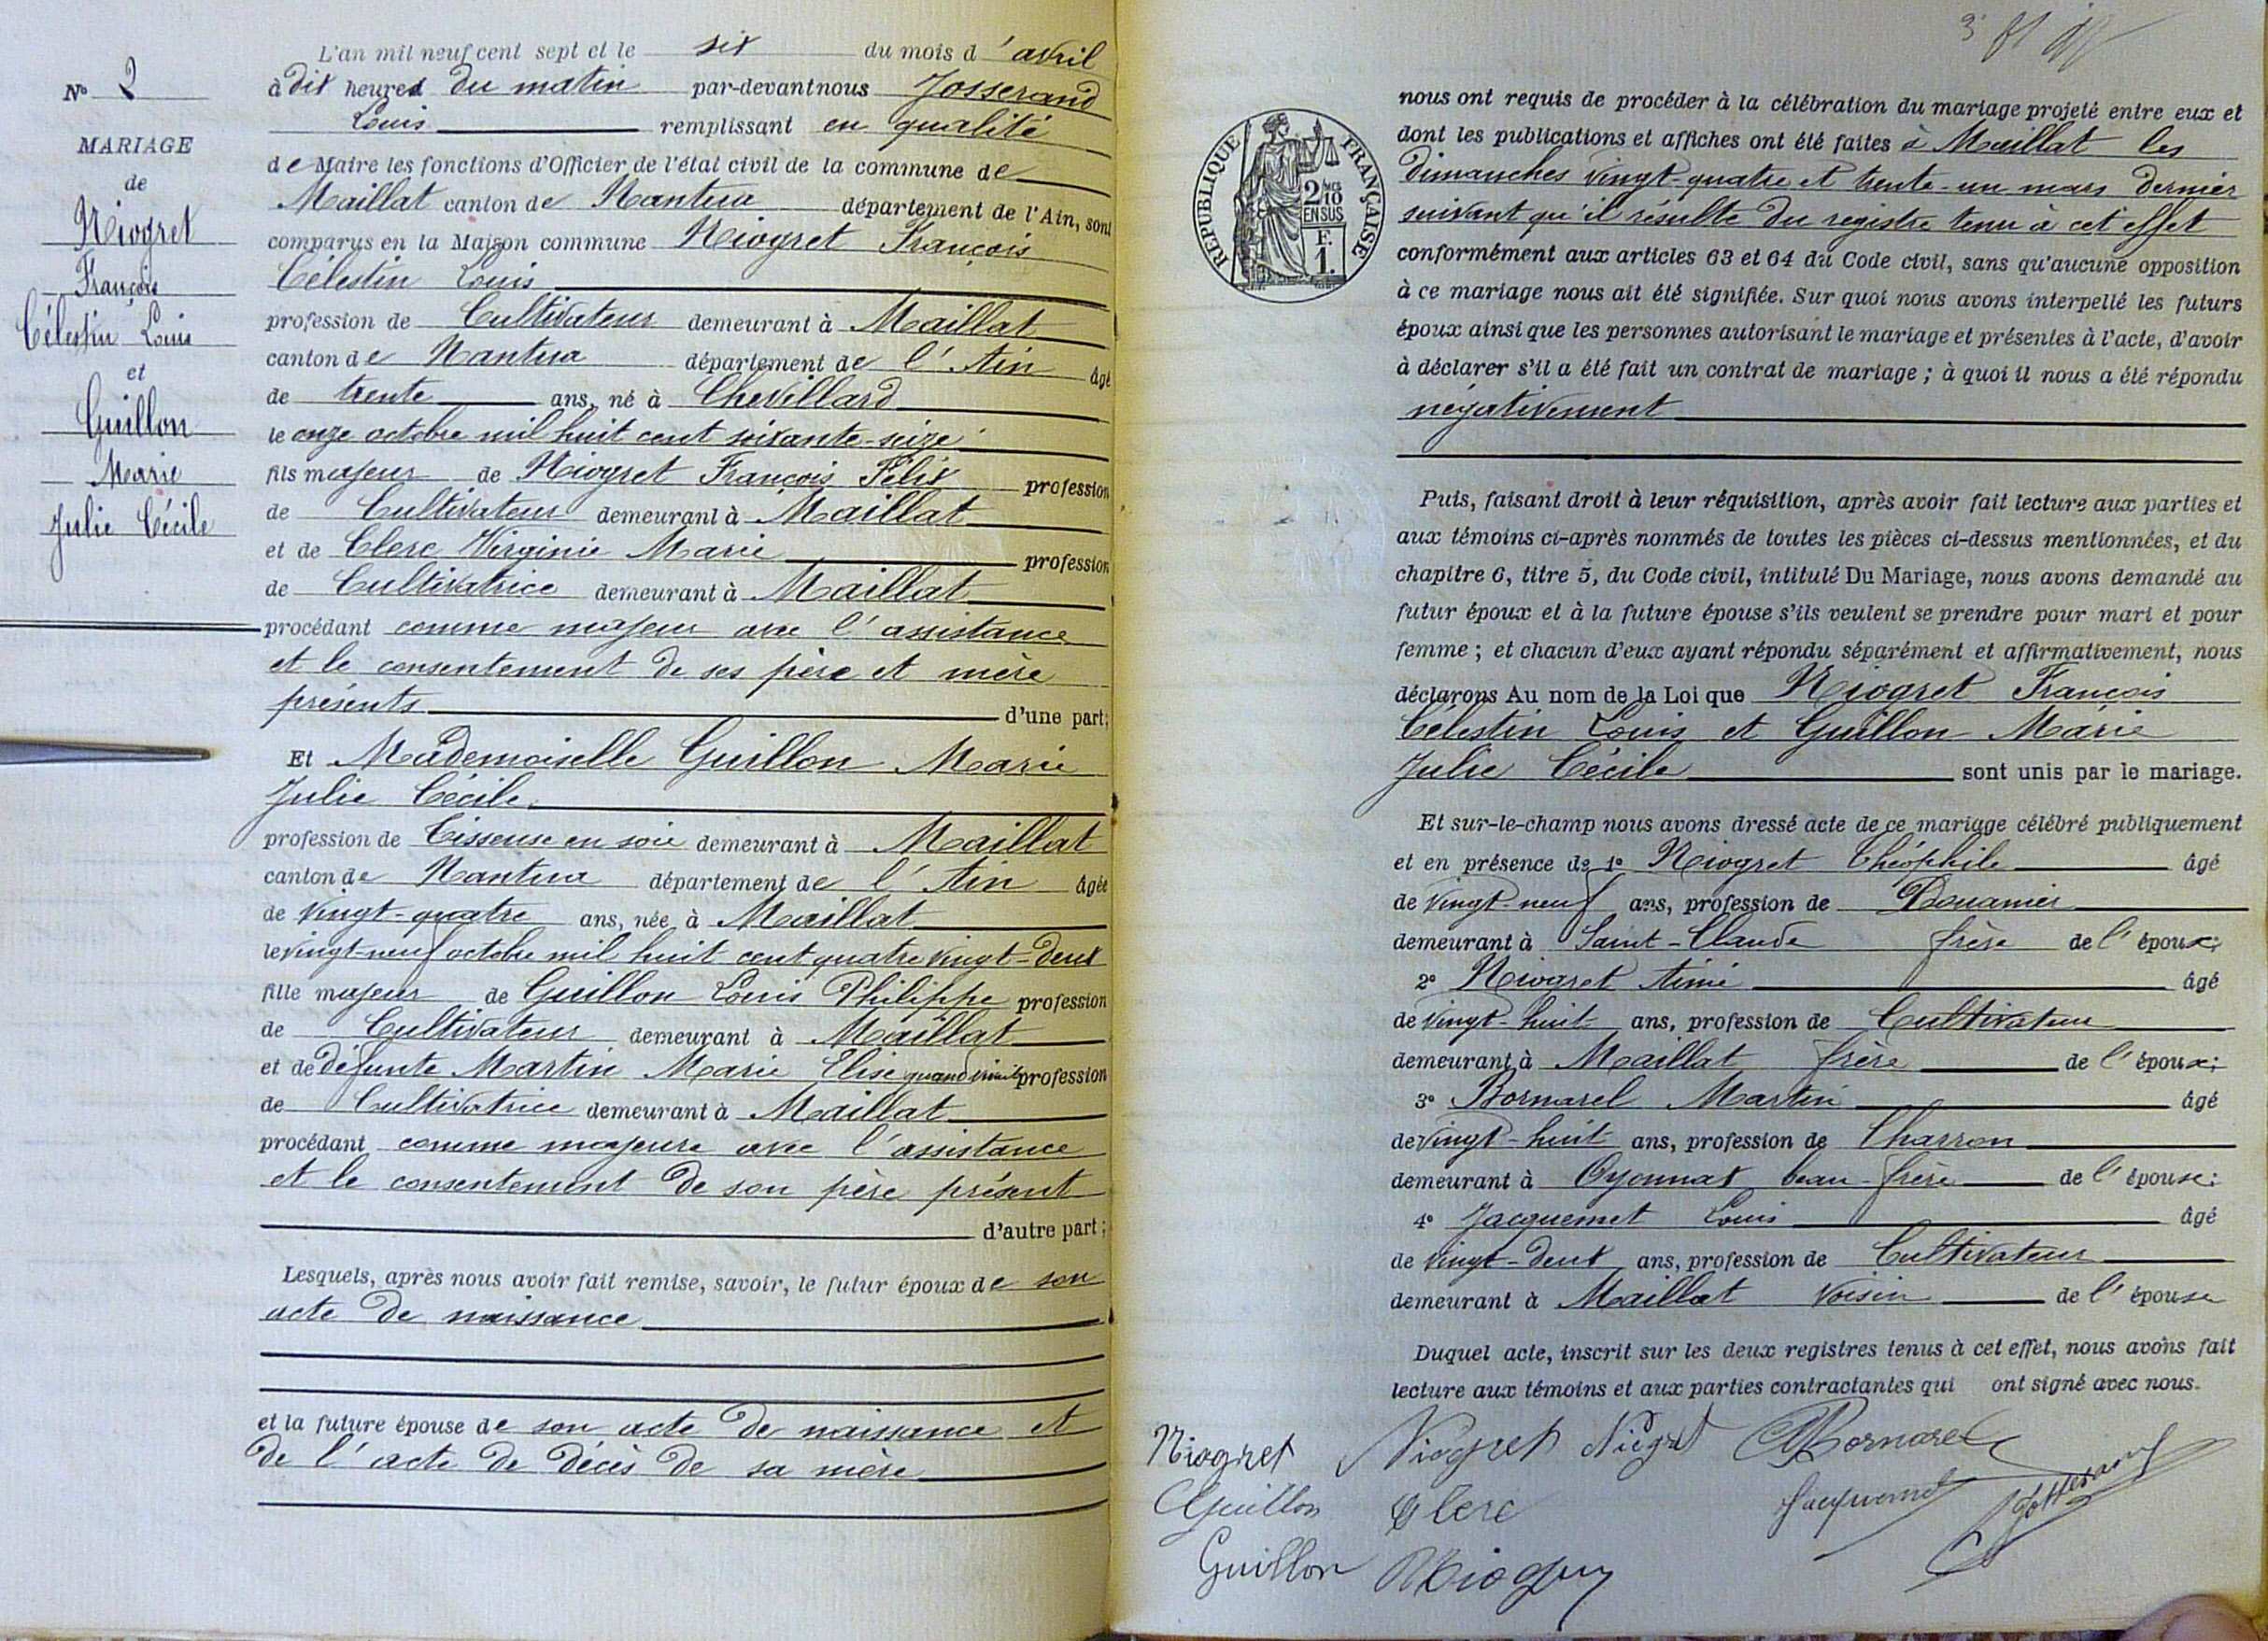 N° 2
MARIAGE
de
Niogret
François
Célestin Louis
et
Guillon
Marie
Julie Cécile
L'an mil neuf cent sept et le six du mois d'avril
à dix heures du matin par-devant nous Josserand
Louis remplissant en qualité
de Maire les fonctions d'Officier de l'état civil de la commune de
Maillat canton de Nantua département de l'Ain, sont
comparus en la Maison commune Niogret François
Célestin Louis
profession de Cultivateur demeurant à Maillat
canton de Nantua département de l'Ain âgé
de trente ans, né à Chevillard
le onze octobre mil huit cent soixante-seize
fils majeur de Niogret François Félix profession
de Cultivateur demeurant à Maillat
et de Clerc Virginie Marie profession
de Cultivatrice demeurant à Maillat
procédant comme majeur avec l'assistance
et le consentement de ses père et mère
présents d'une part;
Et Mademoiselle Guillon Marie
Julie Cécile
profession de Tisseuse en soie demeurant à Maillat
canton de Nantua département de l'Ain âgée
de vingt-quatre ans, née à Maillat
le vingt-neuf octobre mil huit cent quatre vingt-deux
fille majeur de Guillon Louis Philippe profession
de Cultivateur demeurant à Maillat
et de défunte Martin Marie Elise quand vivait profession
de Cultivatrice demeurant à Maillat
procédant comme majeure avec l'assistance
et le consentement de son père présent
d'autre part;
Lesquels, après nous avoir fait remise, savoir, le futur époux de son
acte de naissance
et la future épouse de son acte de naissance et
de l'acte de décès de sa mère
RÉPUBLIQUE FRANÇAISE
2 MES 10
EN SUS
F.
1.
nous ont requis de procéder à la célébration du mariage projeté entre eux et
dont les publications et affiches ont été faites à Maillat les
dimanches vingt-quatre et trente-un mars dernier
suivant qu'il résulte du registre tenu à cet effet
conformément aux articles 63 et 64 du Code civil, sans qu'aucune opposition
à ce mariage nous ait été signifiée. Sur quoi nous avons interpellé les futurs
époux ainsi que les personnes autorisant le mariage et présentes à l'acte, d'avoir
à déclarer s'il a été fait un contrat de mariage ; à quoi il nous a été répondu
négativement
Puis, faisant droit à leur réquisition, après avoir fait lecture aux parties et
aux témoins ci-après nommés de toutes les pièces ci-dessus mentionnées, et du
chapitre 6, titre 5, du Code civil, intitulé Du Mariage, nous avons demandé au
futur époux et à la future épouse s'ils veulent se prendre pour mari et pour
femme ; et chacun d'eux ayant répondu séparément et affirmativement, nous
déclarons Au nom de la Loi que Niogret François
Célestin Louis et Guillon Marie
Julie Cécile sont unis par le mariage.
Et sur-le-champ nous avons dressé acte de ce mariage célébré publiquement
et en présence de 1° Niogret Théophile âgé
de vingt-neuf ans, profession de Douanier
demeurant à Saint-Claude frère de l'époux;
2° Niogret Aimé âgé
de vingt-huit ans, profession de Cultivateur
demeurant à Maillat frère de l'époux;
3° Bornarel Martin âgé
de vingt-huit ans, profession de Charron
demeurant à Oyonnax beau-frère de l'épouse;
4° Jacquemet Louis âgé
de vingt-deux ans, profession de Cultivateur
demeurant à Maillat voisin de l'épouse
Duquel acte, inscrit sur les deux registres tenus à cet effet, nous avons fait
lecture aux témoins et aux parties contractantes qui ont signé avec nous.
Niogret Niogret Niogret Bornarel
Guillon Clerc Jacquemet Josserand
Guillon Niogret